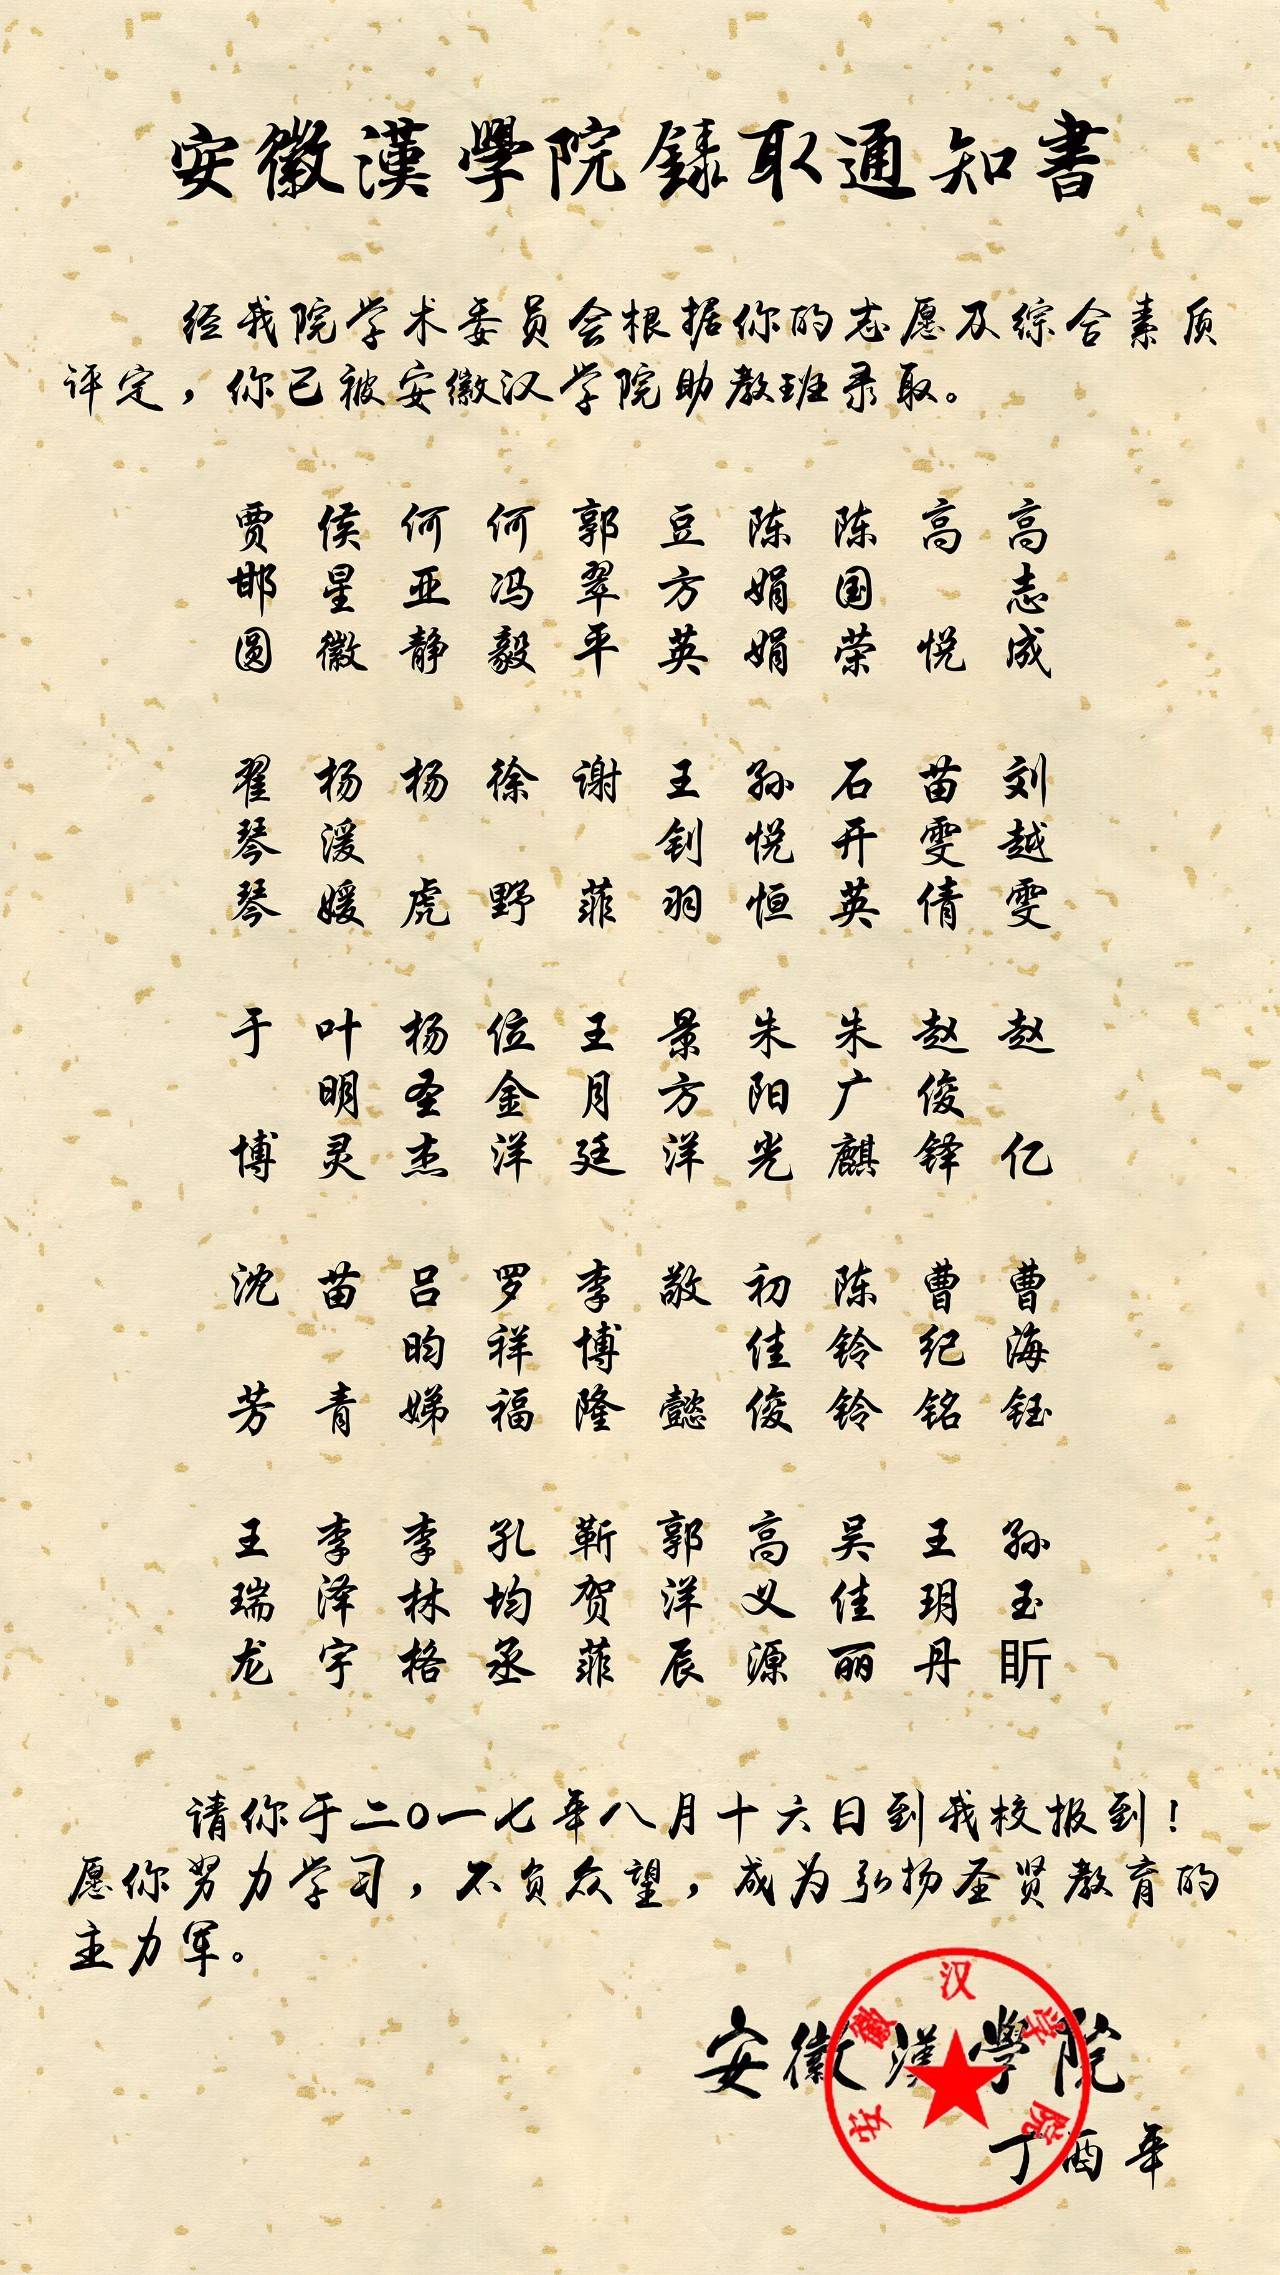 安徽漢學院錄取通知書
经我院学术委员会根据你的志愿及综合素质
评定，你已被安徽汉学院助教班录取。
高志成
高悦
陈国荣
陈娟娟
豆方英
郭翠平
何冯毅
何亚静
侯星徽
贾邯圆
刘越雯
苗雯倩
石开英
孙悦恒
王钊羽
谢菲
徐野
杨虎
杨湲媛
翟琴琴
赵亿
赵俊铎
朱广麒
朱阳光
景方洋
王月廷
位金洋
杨圣杰
叶明灵
于博
曹海钰
曹纪铭
陈铃铃
初佳俊
敬懿
李博隆
罗祥福
吕昀娣
苗青
沈芳
孙玉昕
王玥丹
吴佳丽
高义源
郭洋辰
靳贺菲
孔均丞
李林格
李泽宇
王瑞龙
请你于二〇一七年八月十六日到我校报到！
愿你努力学习，不负众望，成为弘扬圣贤教育的
主力军。
安徽漢學院
丁酉年
安徽汉学院